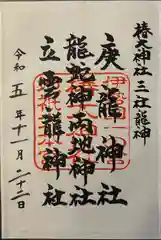 椿大神社 三社龍神
庚龍神社
龍蛇神両地神社
立雲龍神社
令和五年十一月二十二日